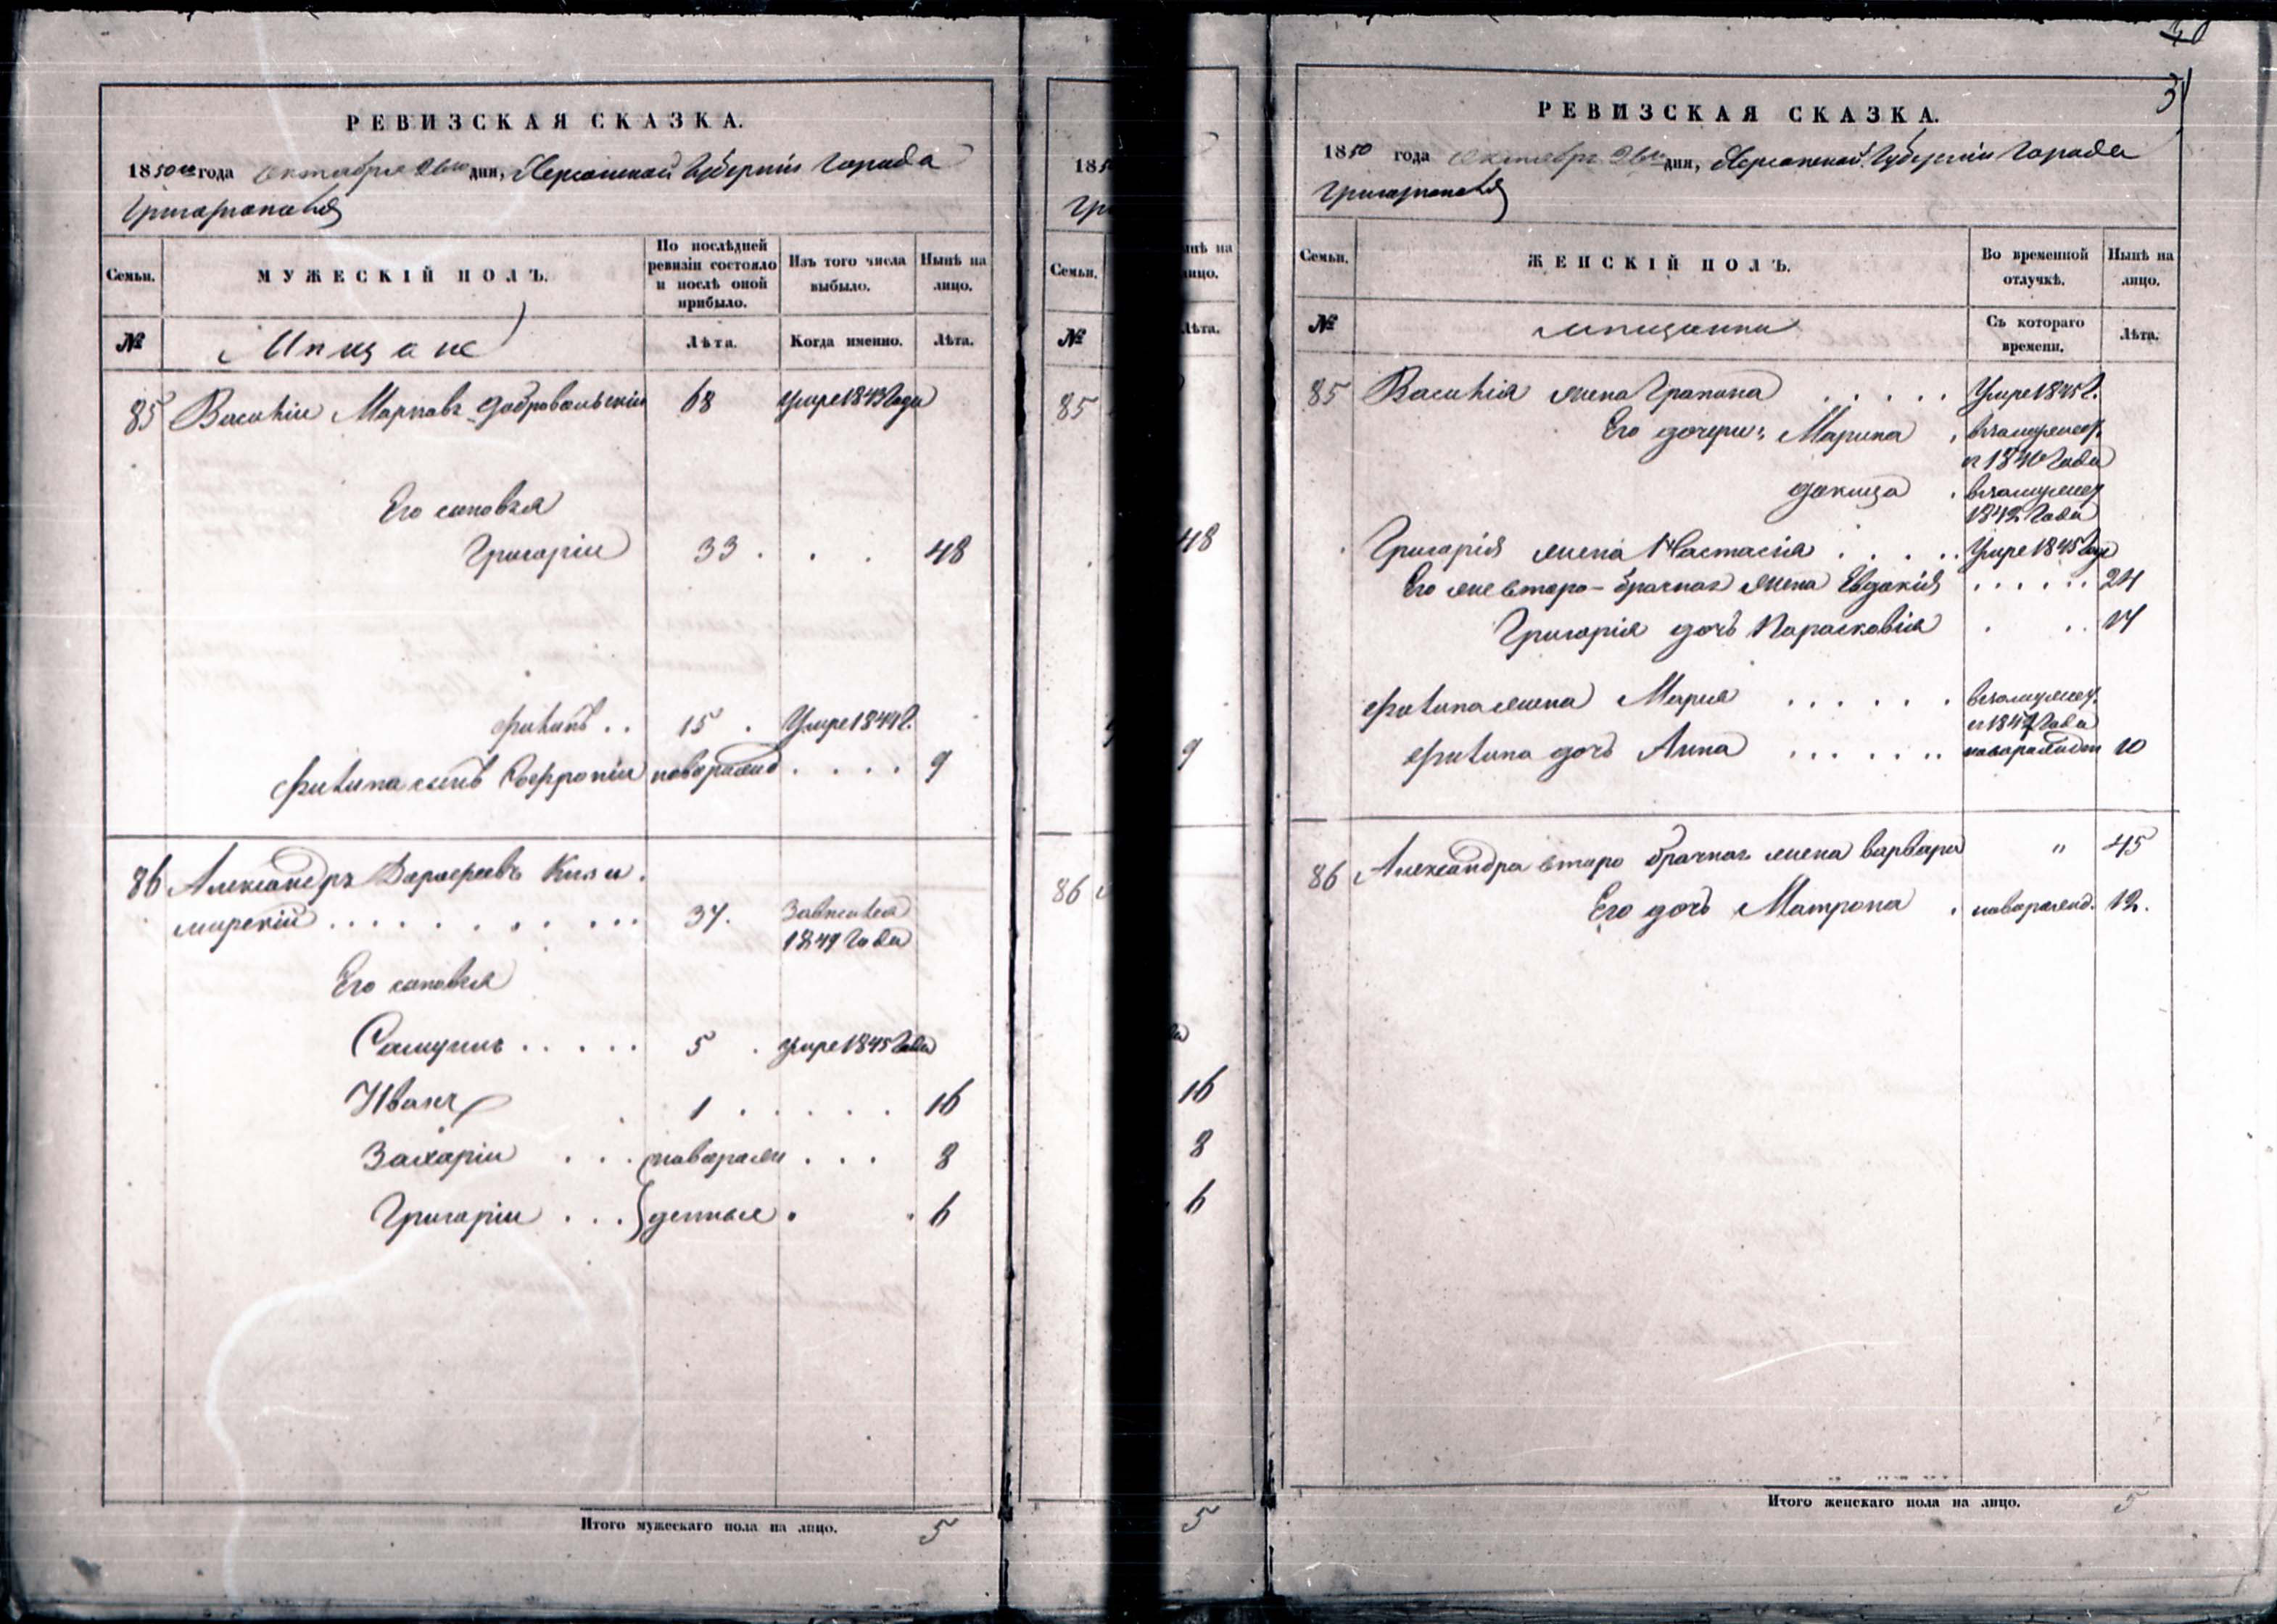 РЕВИЗСКАЯ СКАЗКА.
1850 го года октября 26го дня, Херсонской Губерніи города
Григоріополя
Семьи.
МУЖЕСКІЙ ПОЛЪ.
По послѣдней ревизіи состояло и послѣ оной прибыло.
Изъ того числа выбыло.
Нынѣ на лицо.
№
Мѣщане
Лѣта.
Когда именно.
Лѣта.
85 Василій Марковъ Добровольскій 68 умре 1843 года
Его сыновья
Григорій 33 . . . 48
Филипъ . . 15 . Умре 1844 г.
Филипа сынъ новорожд . . . . 9
86 Александръ
37. 1849 года
Его сыновья
Самуилъ . . . . . 5 . умре 1845 года
Иванъ 1 . . . . . 16
Захарій . . . новорож . . . 8
Григорій . . . денные . . 6
Итого мужескаго пола на лицо. 5
185
Гри
Семьи.
№
85
86
ынѣ на
лицо.
Лѣта.
48
9
16
8
6
5
31
РЕВИЗСКАЯ СКАЗКА.
1850 года октября 26го дня, Херсонской Губерніи города
Григоріополя
Семьи.
ЖЕНСКІЙ ПОЛЪ.
Во временной отлучкѣ.
Нынѣ на лицо.
№
мѣщанки
Съ котораго времени.
Лѣта.
85 Василія жена . . . . . Умре 1845 г.
Его дочери: Марина , въ замужеср.
съ 1840 года
Докища . въ замужеср
1842 года
Григорія жена Настасія . . . . . Умре 1845 года
Его же второ-брачная жена Евдокія . . . . . . 24
Григорія дочь Парасковія . . . 14
Филипа жена Марія . . . . . . въ замужеср.
съ 1847 года
Филипа дочь Анна . . . . . . новорожден 10
86 Александра второ брачная жена варвара " 45
Его дочь Матрона . новорожд. 12.
Итого женскаго пола на лицо. 5